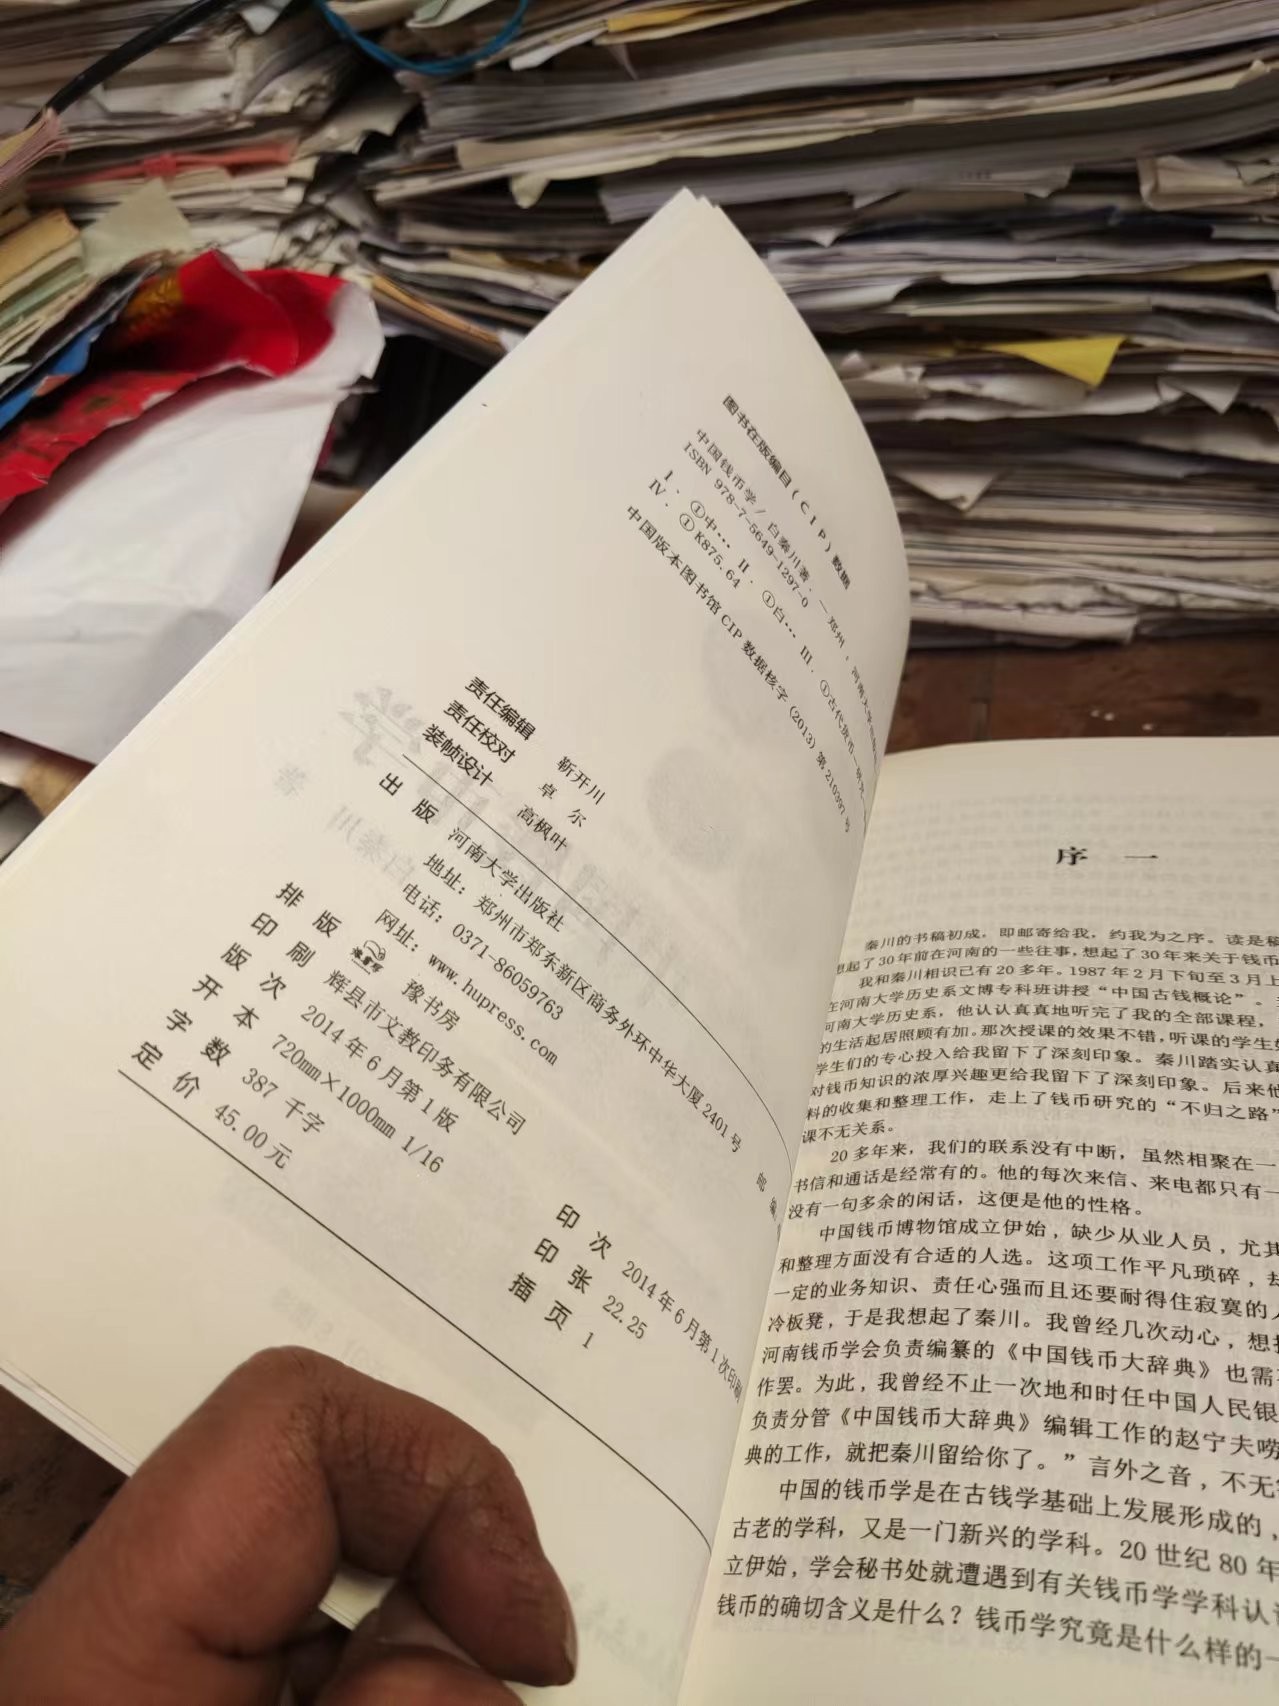 图书在版编目(CIP)数据
中国钱币学/白秦川著.—郑州:河南大学出版社
ISBN 978-7-5649-1297-0
Ⅰ.①中… Ⅱ.①白… Ⅲ.①古代货币—研究
Ⅳ.①K875.64
中国版本图书馆CIP数据核字(2013)第210397号
责任编辑 靳开川
责任校对 卓 尔
装帧设计 高枫叶
出 版 河南大学出版社
地址:郑州市郑东新区商务外环中华大厦2401号 邮 编
电话:0371-86059763
网址:www.hupress.com
排 版 豫书房
印 刷 辉县市文教印务有限公司
版 次 2014年6月第1版 印 次 2014年6月第1次印刷
开 本 720mm×1000mm 1/16 印 张 22.25
字 数 387千字 插 页 1
定 价 45.00元
序 一
秦川的书稿初成,即邮寄给我,约我为之序。读是稿
想起了30年前在河南的一些往事,想起了30年来关于钱币
我和秦川相识已有20多年。1987年2月下旬至3月上
在河南大学历史系文博专科班讲授“中国古钱概论”。
河南大学历史系,他认认真真地听完了我的全部课程,
的生活起居照顾有加。那次授课的效果不错,听课的学生
学生们的专心投入给我留下了深刻印象。秦川踏实认真
对钱币知识的浓厚兴趣更给我留下了深刻印象。后来他
料的收集和整理工作,走上了钱币研究的“不归之路”
课不无关系。
20多年来,我们的联系没有中断,虽然相聚在一
书信和通话是经常有的。他的每次来信、来电都只有一
没有一句多余的闲话,这便是他的性格。
中国钱币博物馆成立伊始,缺少从业人员,尤其
和整理方面没有合适的人选。这项工作平凡琐碎,却
一定的业务知识、责任心强而且还要耐得住寂寞的人
冷板凳,于是我想起了秦川。我曾经几次动心,想把
河南钱币学会负责编纂的《中国钱币大辞典》也需
作罢。为此,我曾经不止一次地和时任中国人民银
负责分管《中国钱币大辞典》编辑工作的赵宁夫唠
典的工作,就把秦川留给你了。”言外之音,不无
中国的钱币学是在古钱学基础上发展形成的,
古老的学科,又是一门新兴的学科。20世纪80年
立伊始,学会秘书处就遭遇到有关钱币学学科认
钱币的确切含义是什么?钱币学究竟是什么样的一